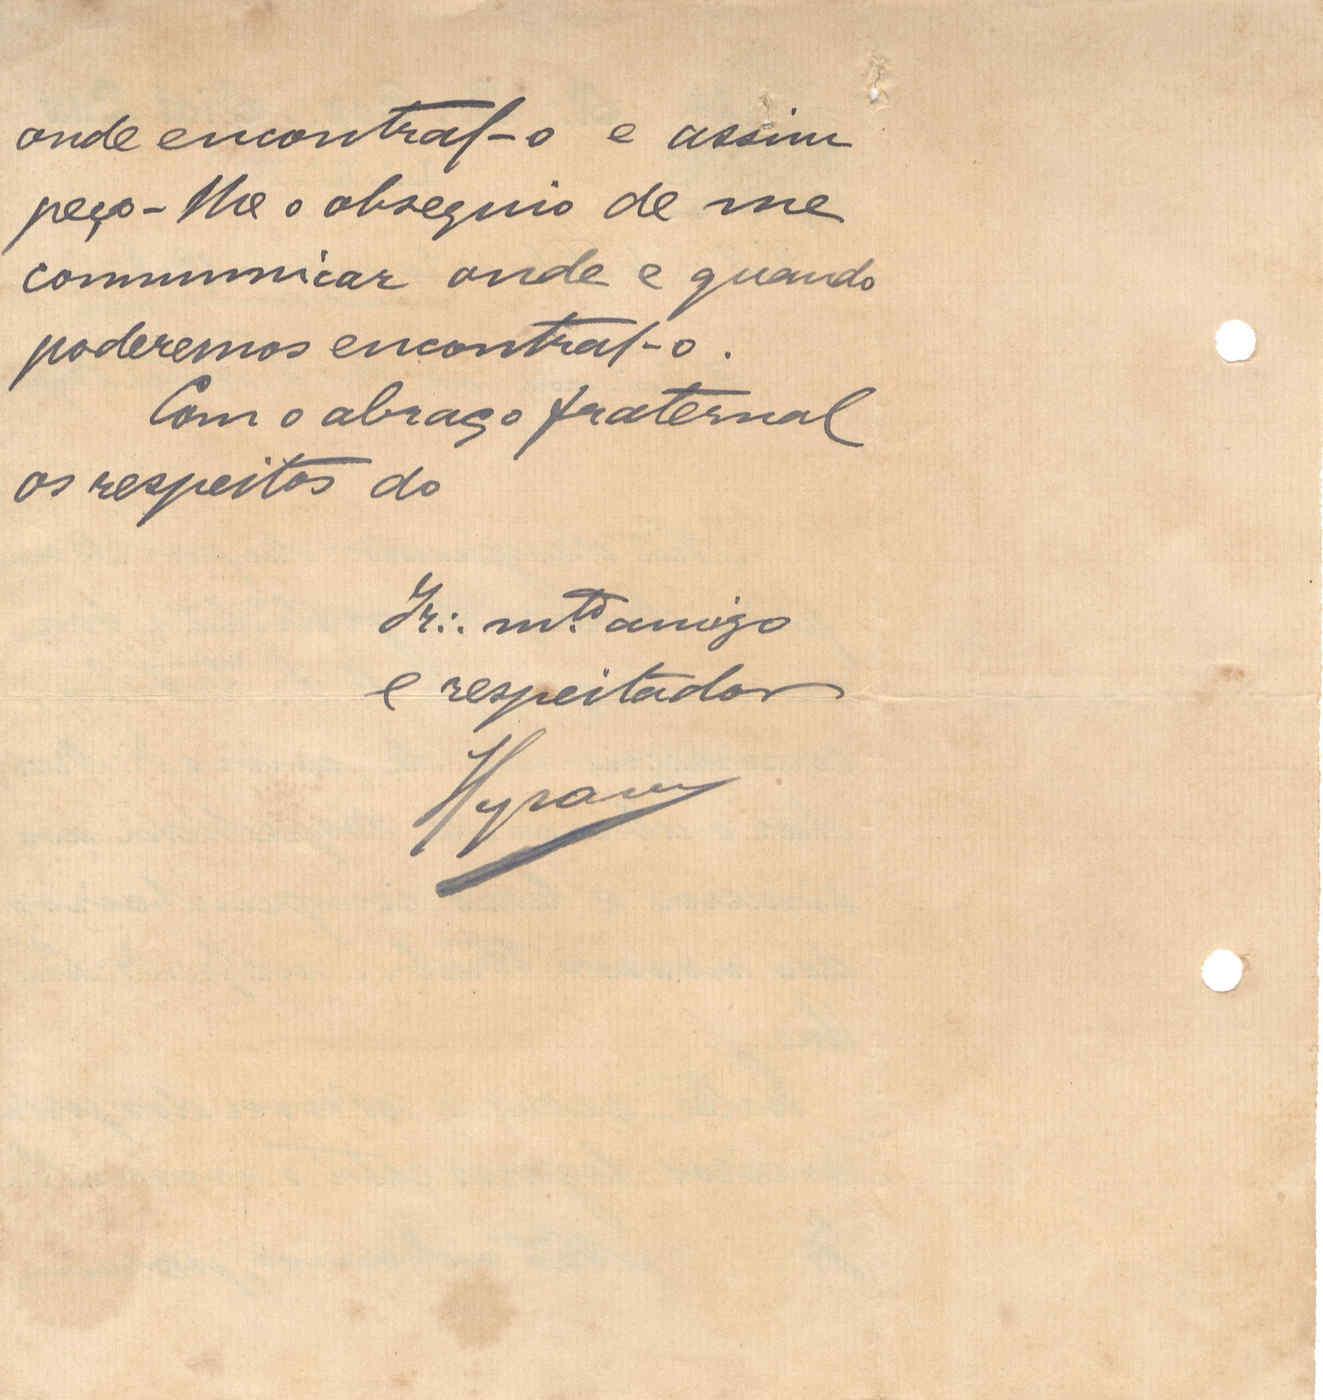 onde encontral-o e assim
peço-lhe o obsequio de me
communicar onde e quando
poderemos encontral-o.
Com o abraço fraternal
os respeitos do
Ir∴ mto. amigo
e respeitador
Hyram